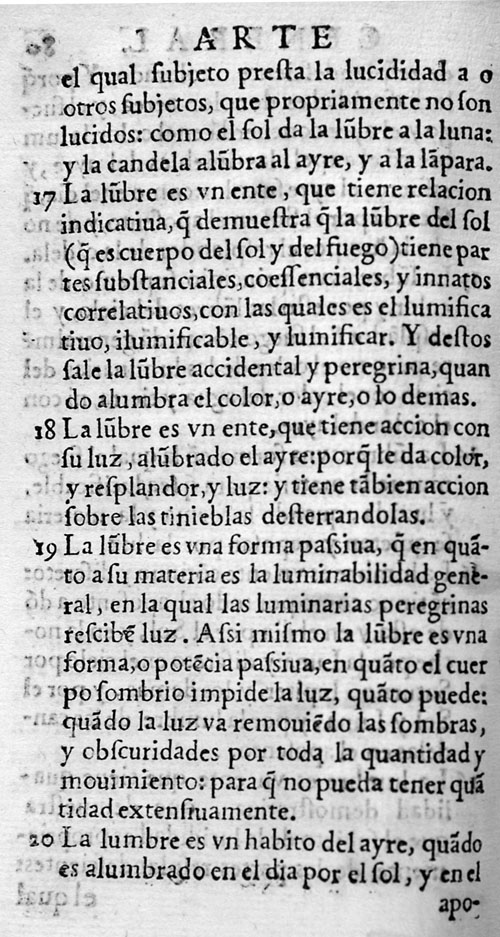 ARTE
el qual ſubjeto preſta la lucididad a o
otros ſubjetos, que propriamente no ſon
lucidos: como el ſol da la lũbre a la luna:
y la candela alũbra al ayre, y a la lãpara.
17 La lũbre es vn ente, que tiene relacion
indicatiua, q̃ demueſtra q̃ la lũbre del ſol
(q̃ es cuerpo del ſol y del fuego) tiene par
tes ſubſtanciales, coeſſenciales, y innatos
correlatiuos, con las quales es el lumifica
tiuo, ilumificable, y lumificar. Y deſtos
ſale la lũbre accidental y peregrina, quan
do alumbra el color, o ayre, o lo demas.
18 La lũbre es vn ente, que tiene accion con
ſu luz, alũbrado el ayre: porq̃ le da color,
y reſplandor, y luz: y tiene tãbien accion
ſobre las tinieblas deſterrandolas.
19 La lũbre es vna forma paſsiua, q̃ en quã-
to a ſu materia es la luminabilidad gene-
ral, en la qual las luminarias peregrinas
reſcibẽ luz. Aſsi miſmo la lũbre es vna
forma, o potẽcia paſsiua, en quãto el cuer
po ſombrio impide la luz, quãto puede:
quãdo la luz va remouiẽdo las ſombras,
y obſcuridades por toda la quantidad y
mouimiento: para q̃ no pueda tener quã
tidad extenſiuamente.
20 La lumbre es vn habito del ayre, quãdo
es alumbrado en el dia por el ſol, y en el
apo-